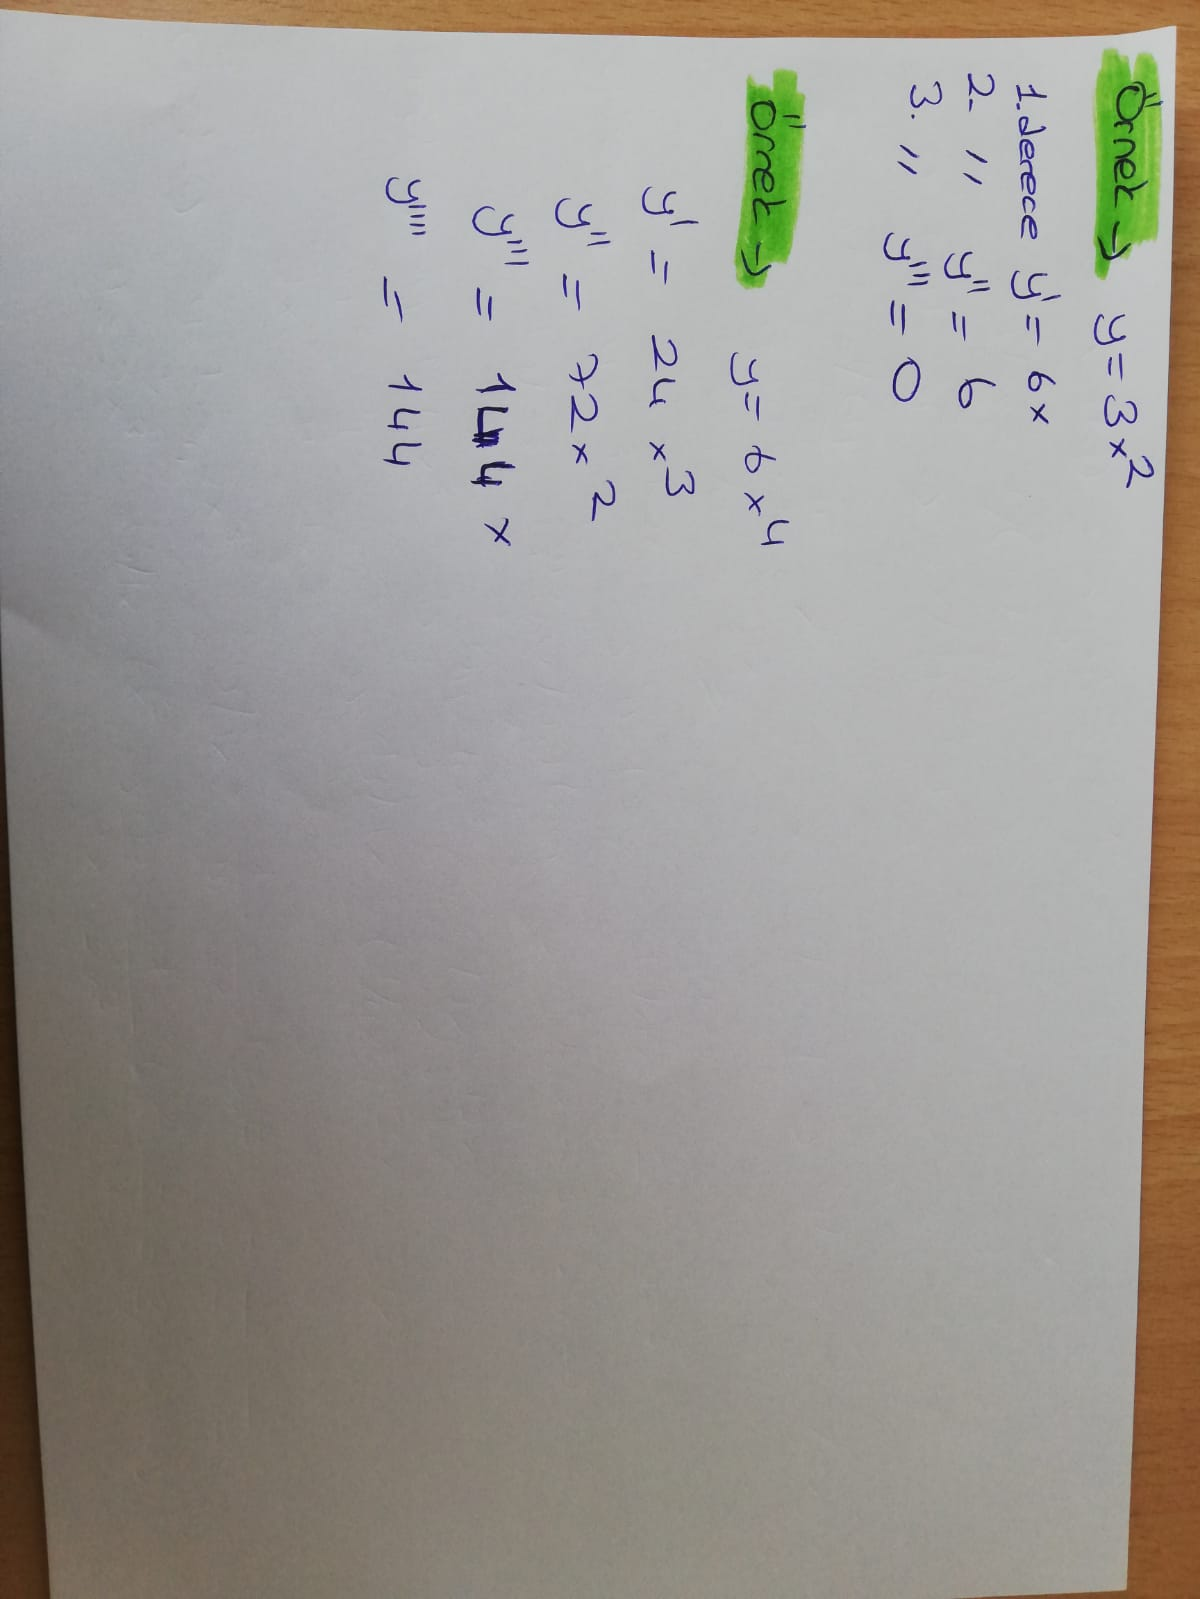 Örnek → y = 3x²
1. derece y' = 6x
2. " y'' = 6
3. " y''' = 0
Örnek → y = 6x⁴
y' = 24x³
y'' = 72x²
y''' = 144x
y'''' = 144